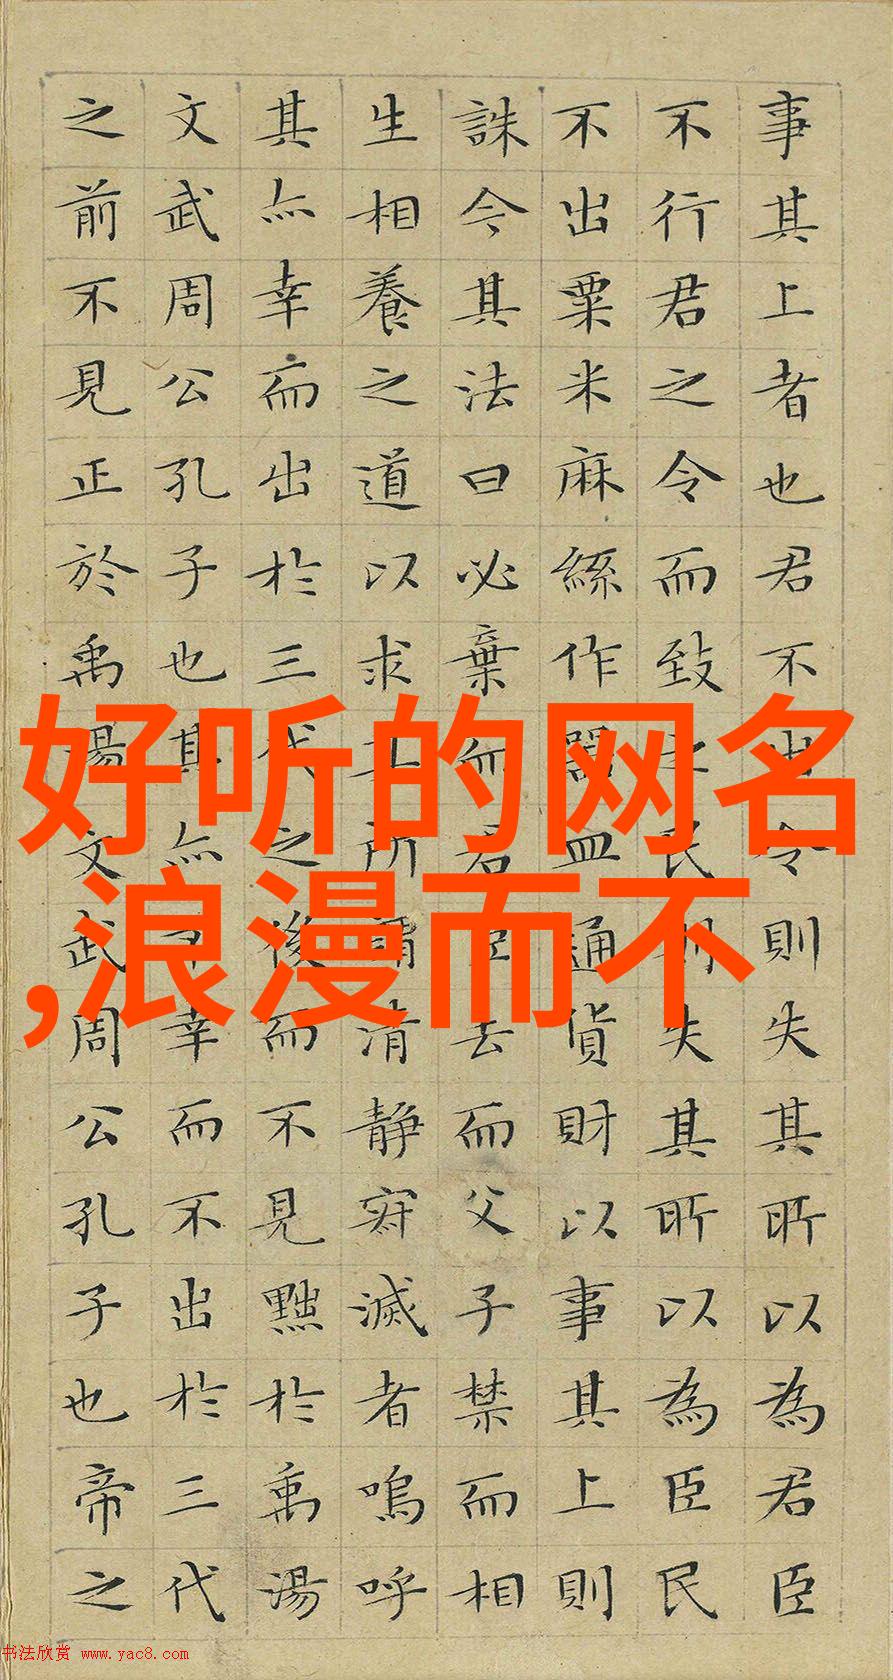 事其上者也君不出令則失其所以為君臣
不行君之令而致之民則失其所以為臣民
不出粟米麻絲作器皿通貨財以事其上則
誅今其法曰必棄而君臣去而父子禁而相
生相養之道以求其所謂清静寂滅者嗚呼
其亦幸而出於三代之後而不見黜於禹湯
文武周公孔子也其亦不幸而不出於三代
之前不見正於禹湯文武周公孔子也帝之
好听的网名
,浪漫而不
书法欣赏 www.yac8.com